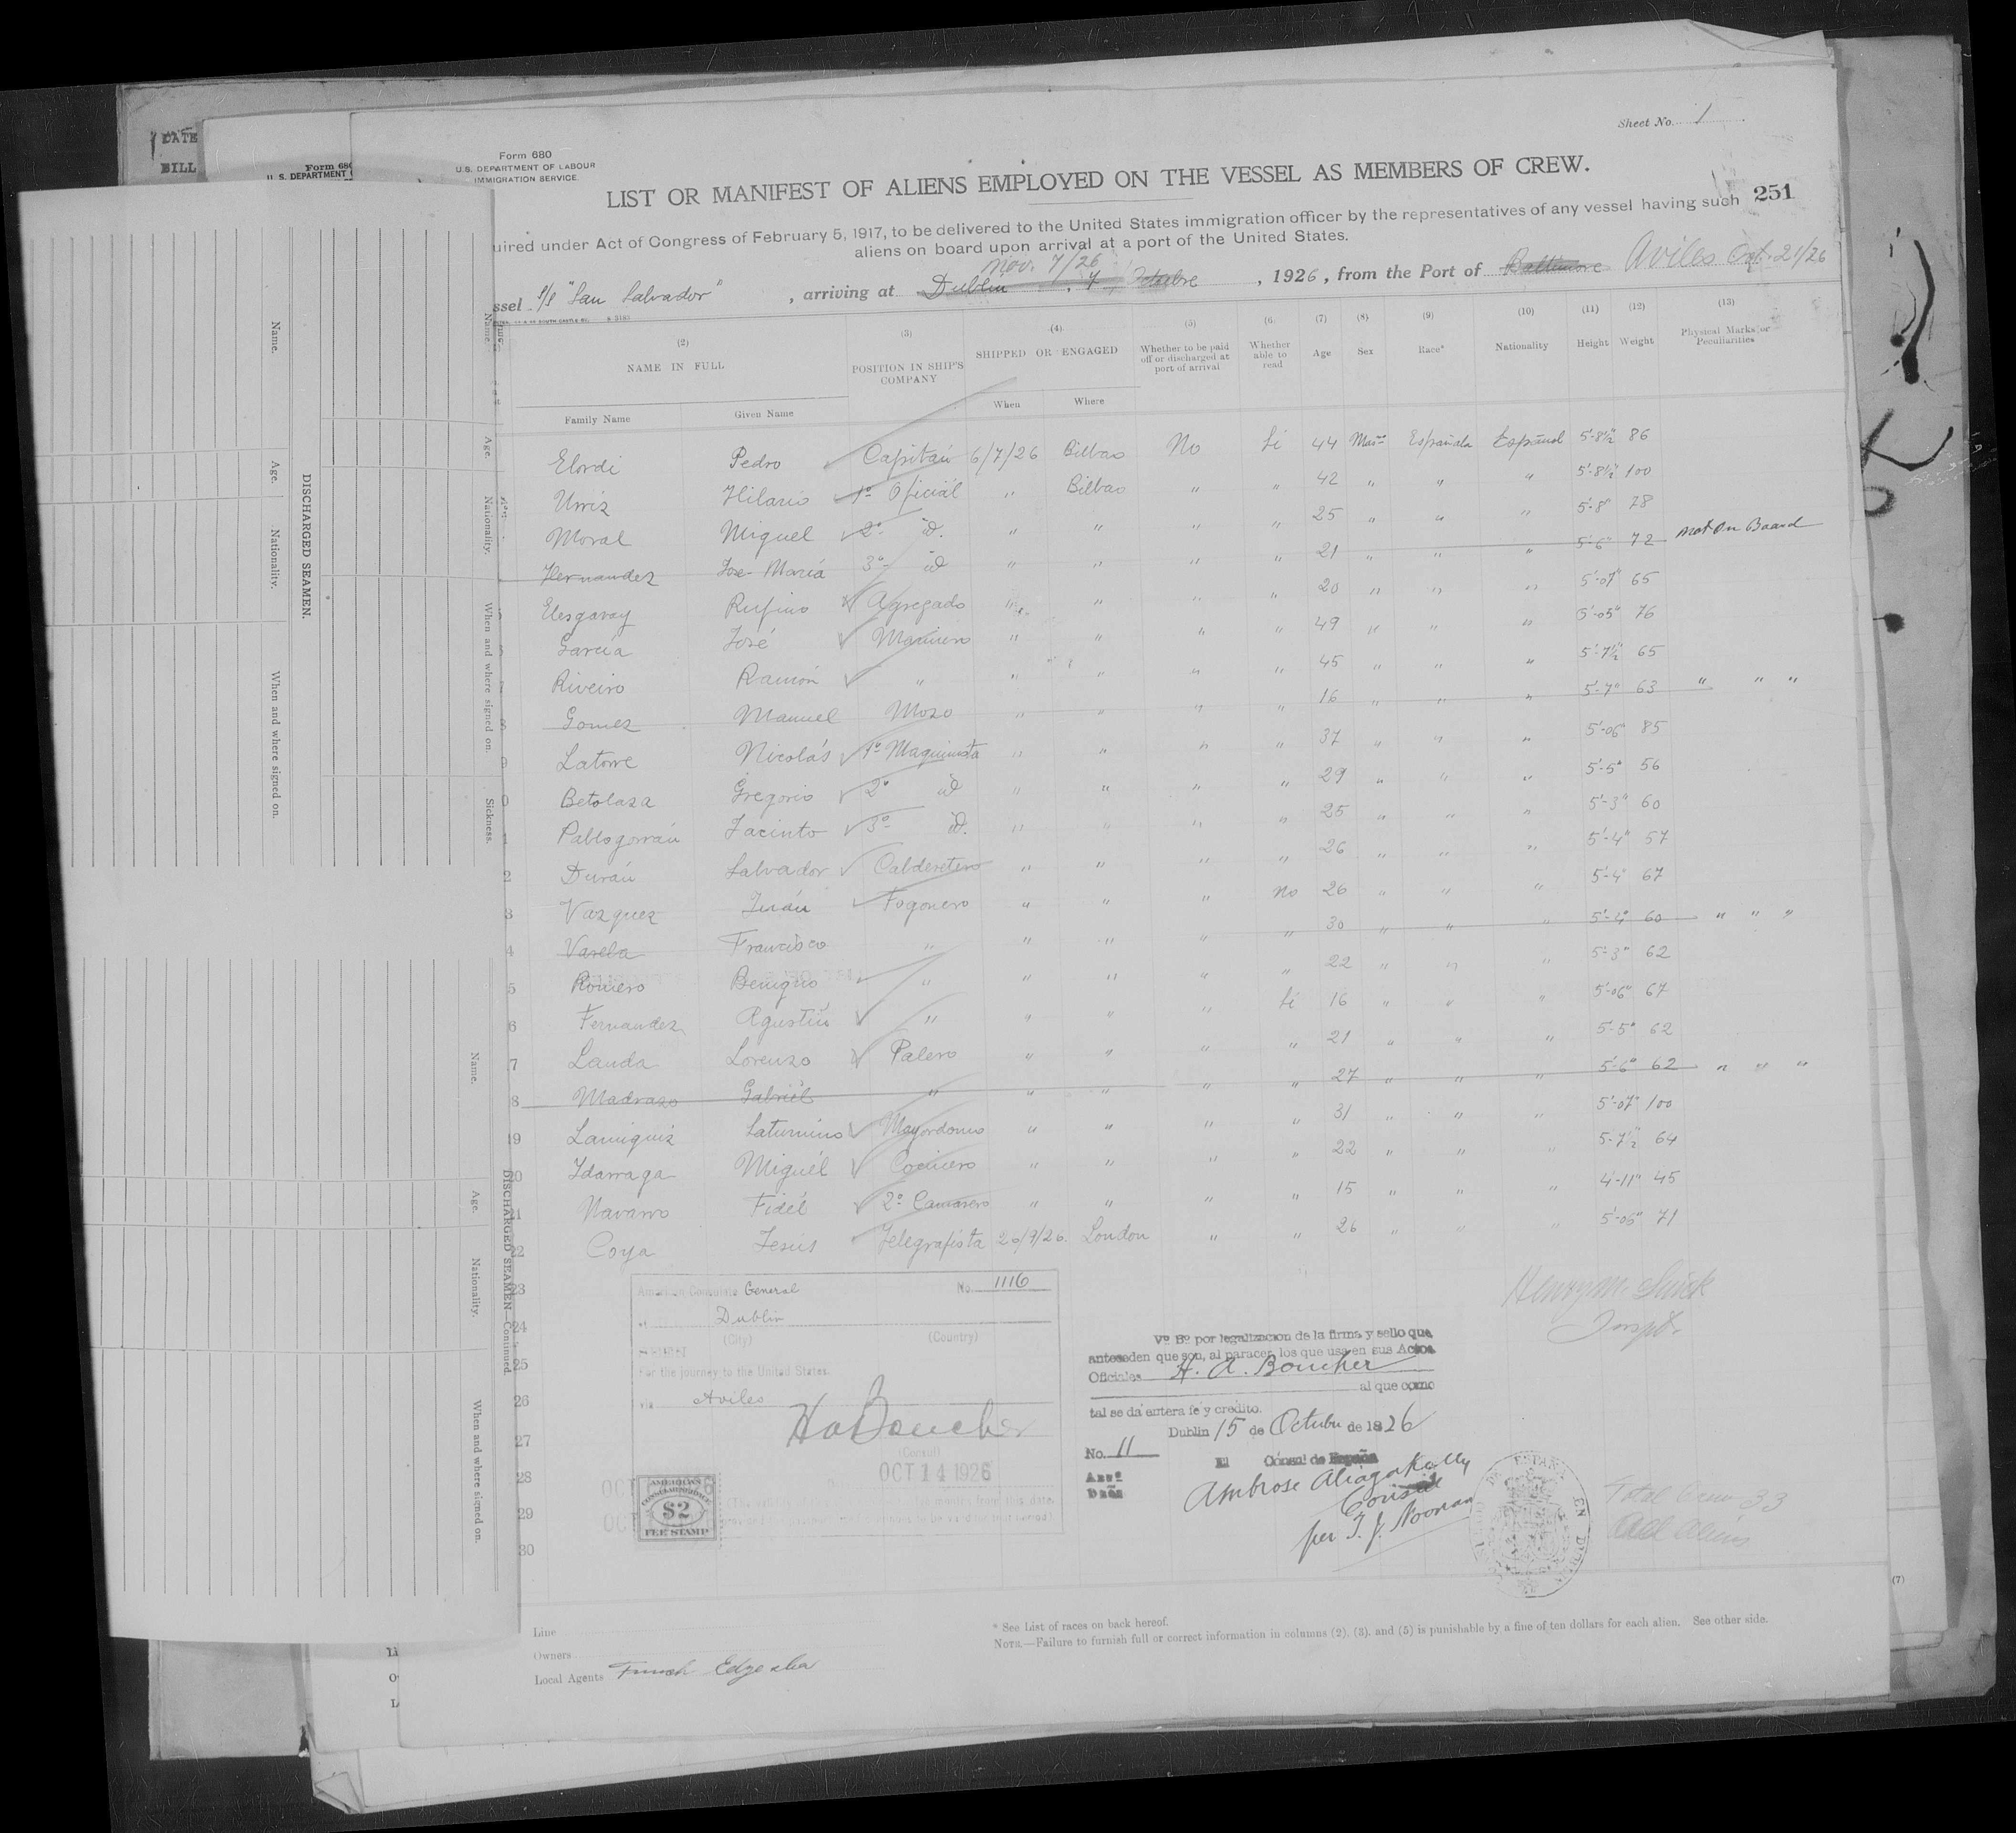 Sheet No. 1
DATE
BILL
Form 680
U. S. DEPARTMENT
Form 680
U.S. DEPARTMENT OF LABOUR
IMMIGRATION SERVICE.
LIST OR MANIFEST OF ALIENS EMPLOYED ON THE VESSEL AS MEMBERS OF CREW.
251
uired under Act of Congress of February 5, 1917, to be delivered to the United States immigration officer by the representatives of any vessel having such
aliens on board upon arrival at a port of the United States.
Nov. 7/26
ssel S/S "San Salvador", arriving at Dublin, 1926, from the Port of Baltimore Aviles Oct. 21/26
(2) (3) (4) (5) (6 (7) (8) (9) (10) (11) (12) (13)
NAME IN FULL POSITION IN SHIP'S COMPANY SHIPPED OR ENGAGED Whether to be paid off or discharged at port of arrival Whether able to read Age Sex Race* Nationality Height Weight Physical Marks or Peculiarities
Family Name Given Name When Where
Elordi Pedro Capitan 6/7/26 Bilbao No Si 44 Masno Española Español 5'-8½" 86
Urriz Hilario 1º Oficial " Bilbao " " 42 " " " 5'-8½" 100
Moral Miguel 2º id. " " " " 25 " " " 5'-8" 78
Hernandez Jose Maria 3º id " " " " 21 " " " 5'-6" 72 Not On Board
Elesgaray Rufino Agregado " " " " 20 " " " 5'-07" 65
Garcia José Marinero " " " " 49 " " " 5'-05" 76
Riveiro Ramón " " " " " 45 " " " 5'-7½" 65
Gomez Manuel Mozo " " " " 16 " " " 5'-7" 63 " " "
Latorre Nicolás 1º Maquinista " " " " 37 " " " 5'-06" 85
Betolaza Gregorio 2º id " " " " 29 " " " 5'-5" 56
Pablogorrán Jacinto 3º id. " " " " 25 " " " 5'-3" 60
2 Durán Salvador Calderetero " " " " 26 " " " 5'-4" 57
3 Vazquez Juán Fogonero " " " No 26 " " " 5'-4" 67
4 Varela Francisco " " " " " 30 " " " 5'-4" 60 " " "
5 Romero Benigno " " " " " 22 " " " 5'-3" 62
6 Fernandez Agustin " " " " Si 16 " " " 5'-06" 67
7 Landa Lorenzo Palero " " " " 21 " " " 5'-5" 62
8 Madrazo Gabriel " " " " " 27 " " " 5'-6" 62 " " "
19 Lamiquiz Saturnino Mayordomo " " " " 31 " " " 5'-07" 100
20 Idarraga Miguél Cocinero " " " " 22 " " " 5-7½" 64
21 Navarro Fidél 2º Camarero " " " " 15 " " " 4-11" 45
22 Coya Jesús Telegrafista 26/7/26. London " " 26 " " " 5'-06" 71
23
24
25
26
27
28
29
30
American Consulate General No. 1116
at Dublin
(City) (Country)
For the journey to the United States.
via Aviles
HABoucher
(Consul)
OCT 14 1926
AMERICAN
CONSULAR SERVICE
$2
FEE STAMP
Vº Bº por legalizacion de la firma y sello que
anteseden que son, al paracer, los que usa en sus Actos
Oficiales H. A. Boucher
al que como
tal se da entera fe y credito.
Dublin 15 de Octubre de 1826
No. 11 El Cónsul de España
Ambrose Aliaga Kelly
Consul
per T. J. Noonan
ESPAÑA EN
Total Crew 33
All Aliens
Line
Owners
Local Agents Funch Edye
* See List of races on back hereof.
NOTE.—Failure to furnish full or correct information in columns (2), (3), and (5) is punishable by a fine of ten dollars for each alien. See other side.
(7)
DISCHARGED SEAMEN.
Name. Age. Nationality. When and where signed on.
Name. Age. Nationality. When and where signed on. Sickness.
DISCHARGED SEAMEN—Continued.
Name. Age. Nationality. When and where signed on.